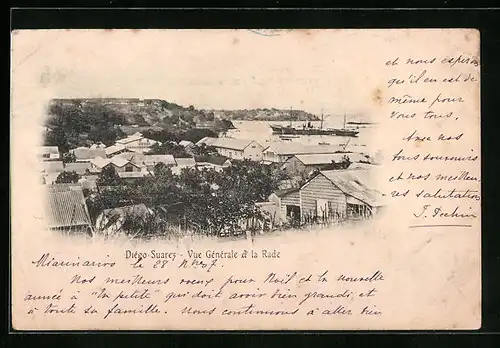 Diégo-Suarez - Vue Générale de la Rade
Miarinarivo le 28 9bre 07.
Nos meilleurs voeux pour Noël et la nouvelle
année à "la petite" qui doit avoir bien grandi, et
à toute sa famille. Nous continuons à aller bien
et nous espérons
qu'il en est de
même pour
vous tous.
Avec nos
bons souvenirs
et nos meilleu-
res salutations